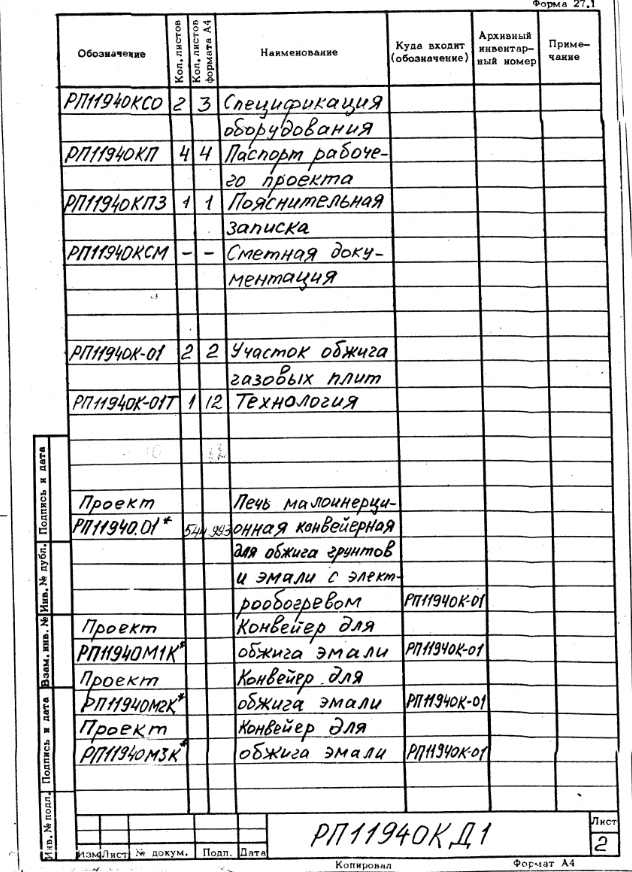 Форма 27.1
Обозначение Кол. листов Кол. листов формата А4 Наименование Куда входит (обозначение) Архивный инвентарный номер Примечание
РП11940КСО 2 3 Спецификация
оборудования
РП11940КП 4 4 Паспорт рабоче-
го проекта
РП11940КПЗ 1 1 Пояснительная
записка
РП11940КСМ – – Сметная доку-
ментация
РП11940К-01 2 2 Участок обжига
газовых плит
РП11940К-01Т 1 12 Технология
Проект Печь малоинерци-
РП11940.01* 544 993 онная конвейерная
для обжига грунтов
и эмали с элект-
рообогревом РП11940К-01
Проект Конвейер для
РП11940М1К* обжига эмали РП11940К-01
Проект Конвейер для
РП11940М2К* обжига эмали РП11940К-01
Проект Конвейер для
РП11940М3К* обжига эмали РП11940К-01
Инв. № подл. Подпись и дата Взам. инв. № Инв. № дубл. Подпись и дата
РП11940К Д1
Лист
2
Изм Лист № докум. Подп. Дата
Копировал Формат А4